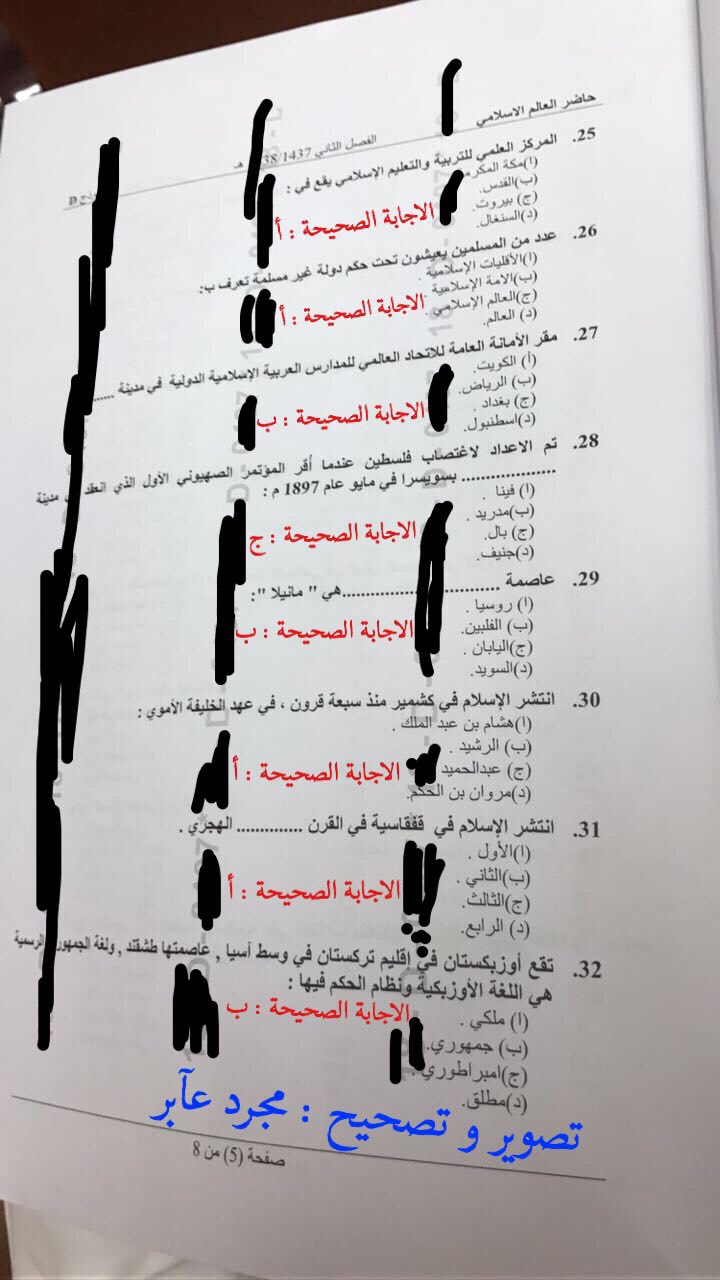 حاضر العالم الاسلامي
الفصل الثاني 38/1437 هـ
25. المركز العلمي للتربية والتعليم الإسلامي يقع في :
(ا)مكة المكرم
(ب)القدس.
(ج) بيروت.
(د)السنغال.
الاجابة الصحيحة : أ
26. عدد من المسلمين يعيشون تحت حكم دولة غير مسلمة تعرف ب:
(ا)الأقليات الإسلامية .
(ب)الامة الإسلامية
(ج)العالم الإسلامي .
(د) العالم.
الاجابة الصحيحة : أ
27. مقر الأمانة العامة للاتحاد العالمي للمدارس العربية الإسلامية الدولية في مدينة ......
(أ) الكويت.
(ب) الرياض.
(ج) بغداد .
(د)اسطنبول.
الاجابة الصحيحة : ب
28. تم الاعداد لاغتصاب فلسطين عندما أقر المؤتمر الصهيوني الأول الذي انعقد مدينة
.................. بسويسرا في مايو عام 1897 م :
(ا) فينا .
(ب)مدريد .
(ج) بال.
(د)جنيف.
الاجابة الصحيحة : ج
29. عاصمة ..............................هي " مانيلا ":
(ا) روسيا .
(ب) الفلبين.
(ج)اليابان .
(د)السويد.
الاجابة الصحيحة : ب
30. انتشر الإسلام في كشمير منذ سبعة قرون ، في عهد الخليفة الأموي :
(ا)هشام بن عبد الملك .
(ب) الرشيد .
(ج) عبدالحميد
(د)مروان بن الحكم.
الاجابة الصحيحة : أ
31. انتشر الإسلام في قفقاسية في القرن ............. الهجري .
(ا)الأول .
(ب)الثاني .
(ج)الثالث.
(د) الرابع.
الاجابة الصحيحة : أ
32. تقع أوزبكستان في إقليم تركستان في وسط آسيا , عاصمتها طشقند , ولغة الجمهور الرسمية
هي اللغة الأوزبكية ونظام الحكم فيها :
(ا) ملكي .
(ب) جمهوري.
(ج)امبراطوري .
(د)مطلق.
الاجابة الصحيحة : ب
تصوير و تصحيح : مجرد عآبر
صفحة (5) من 8